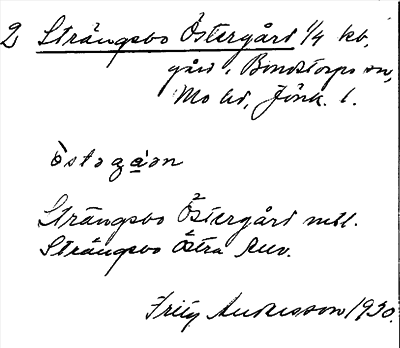 2 Strängsbo Östergård 1/4 kb,
gård, Bondstorps sn,
Mo hd, Jönk. l.
östaga̱on
Strängsbo Östergård mtl.
Strängsbo Östra
Fritz Andersson 1930.